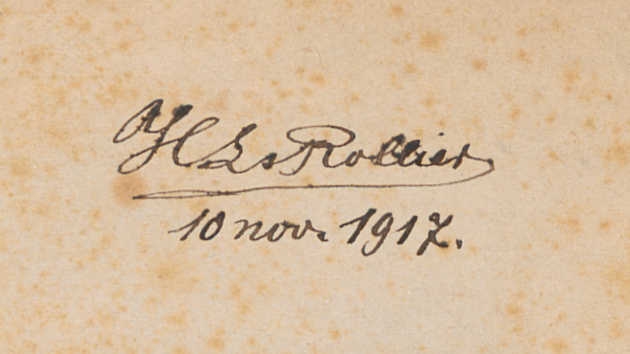 H Ls Rollier
10 nov. 1917.